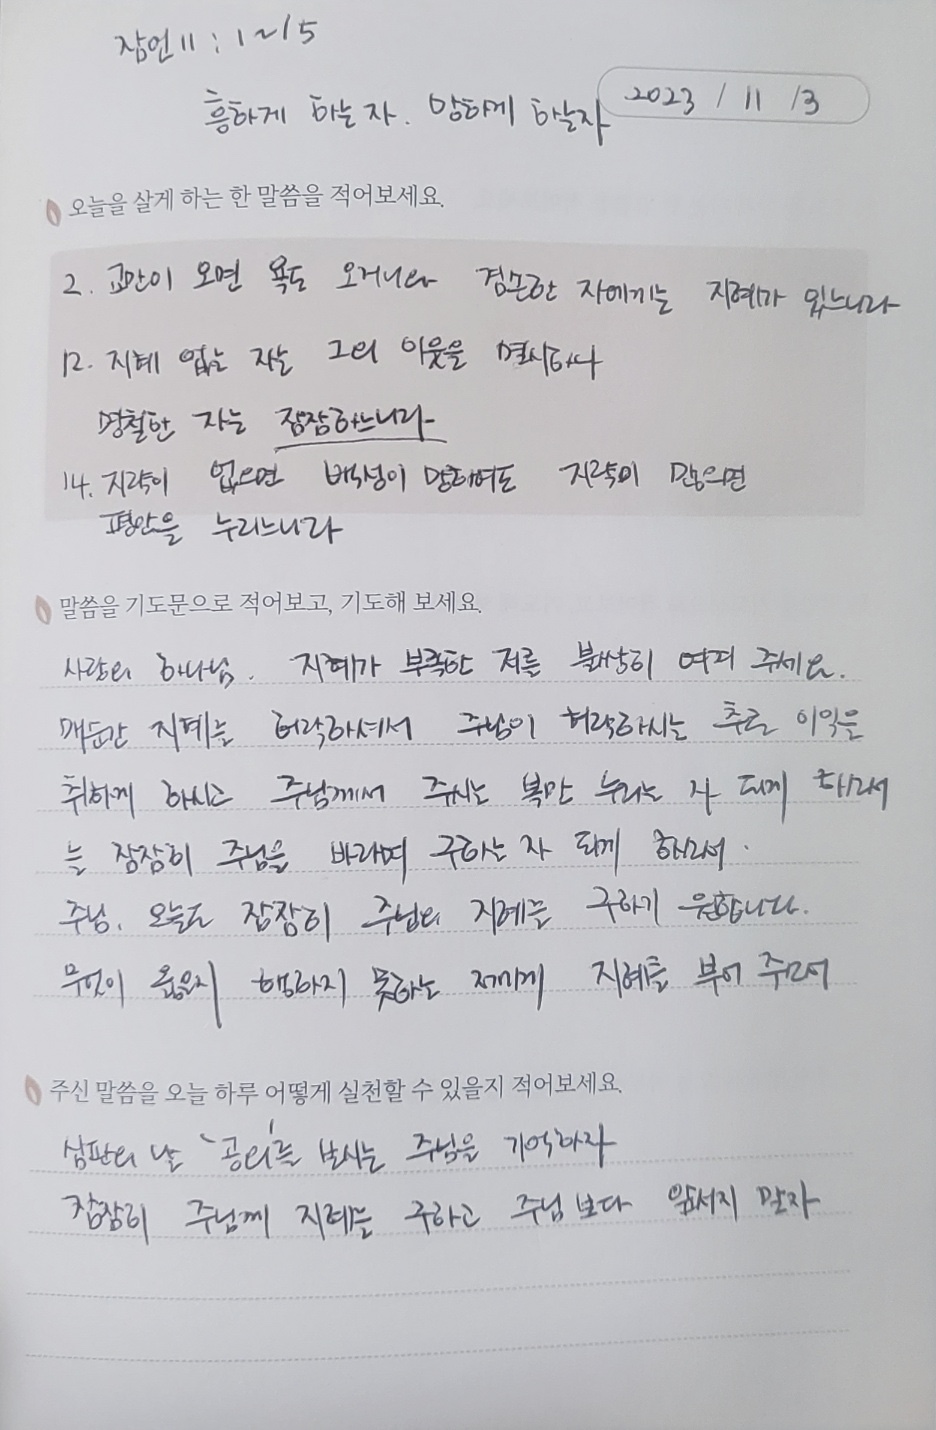 잠언 11 : 1~15
흥하게 하는 자. 망하게 하는자
2023 / 11 /3
오늘을 살게 하는 한 말씀을 적어보세요.
2. 교만이 오면 욕도 오거니와 겸손한 자에게는 지혜가 있느니라
12. 지혜 없는 자는 그의 이웃을 멸시하나
명철한 자는 잠잠하느니라
14. 지략이 없으면 백성이 망하여도 지략이 많으면
평안을 누리느니라
말씀을 기도문으로 적어보고, 기도해 보세요.
사랑의 하나님. 지혜가 부족한 저를 불쌍히 여겨 주세요.
매순간 지혜를 허락하셔서 주님이 허락하시는 추로 이익을
취하게 하시고 주님께서 주시는 복만 누리는 자 되게 하소서
늘 잠잠히 주님을 바라며 구하는 자 되게 하소서.
주님. 오늘도 잠잠히 주님의 지혜를 구하기 원합니다.
무엇이 옳은지 행하지 못하는 에게 지혜를 부어 주소서
주신 말씀을 오늘 하루 어떻게 실천할 수 있을지 적어보세요.
심판의 날 '공의'를 보시는 주님을 기억하자
잠잠히 주님께 지혜를 구하고 주님보다 앞서지 말자